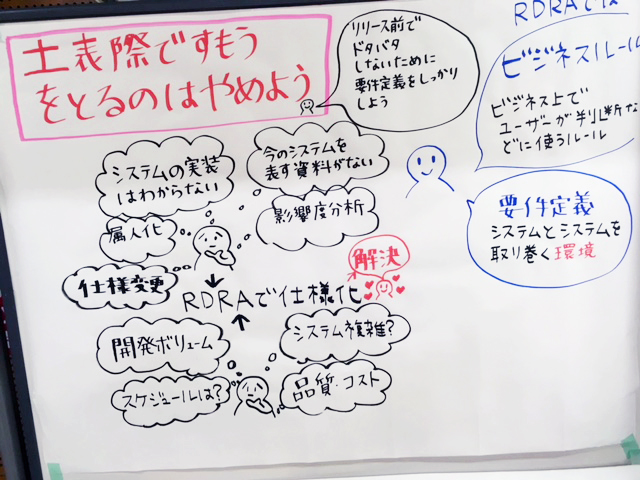 土表際ですもう
をとるのはやめよう
リリース前で
ドタバタ
しないために
要件定義をしっかり
しよう
RDRAで仕
ビジネスルール
ビジネス上で
ユーザーが判断な
どに使うルール
システムの実装
はわからない
今のシステムを
表す資料がない
属人化
影響度分析
仕様変更
解決
RDRAで仕様化
要件定義
システムとシステムを
取り巻く環境
開発ボリューム
システム複雑?
スケジュールは?
品質・コスト